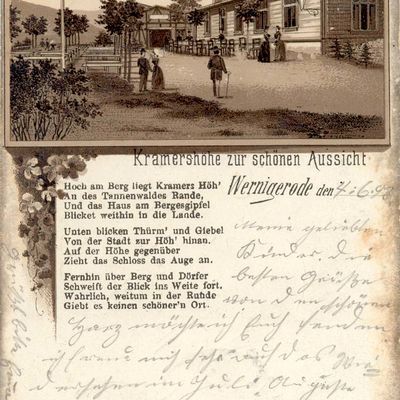 Kramershöhe zur schönen Aussicht
Wernigerode den 7/6.98
Hoch am Berg liegt Kramers Höh'
An des Tannenwaldes Rande,
Und das Haus am Bergesgipfel
Blicket weithin in die Lande.
Unten blicken Thürm' und Giebel
Von der Stadt zur Höh' hinan.
Auf der Höhe gegenüber
Zieht das Schloss das Auge an.
Fernhin über Berg und Dörfer
Schweift der Blick ins Weite fort.
Wahrlich, weitum in der Runde
Giebt es keinen schöner'n Ort.
Meine geliebten
Kinder, die
besten Grüße
von dem schönen
Harz möchte ich Euch senden
ich freue mich sehr auf das Wie-
dersehen im Juli, Auguste